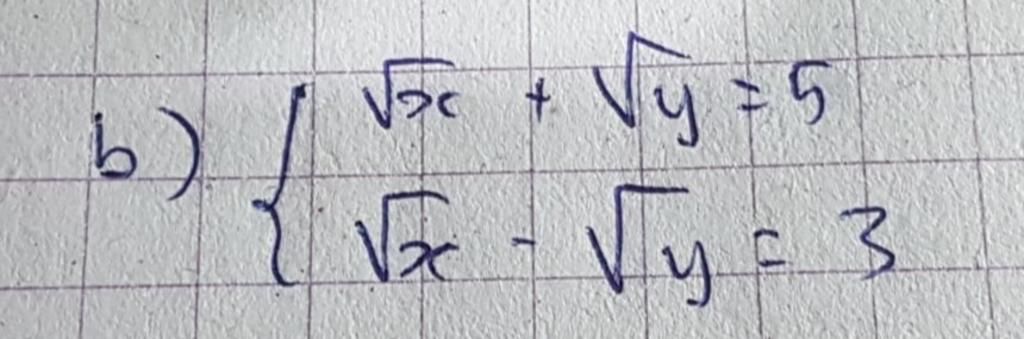 b) { √x + √y = 5
√x - √y = 3